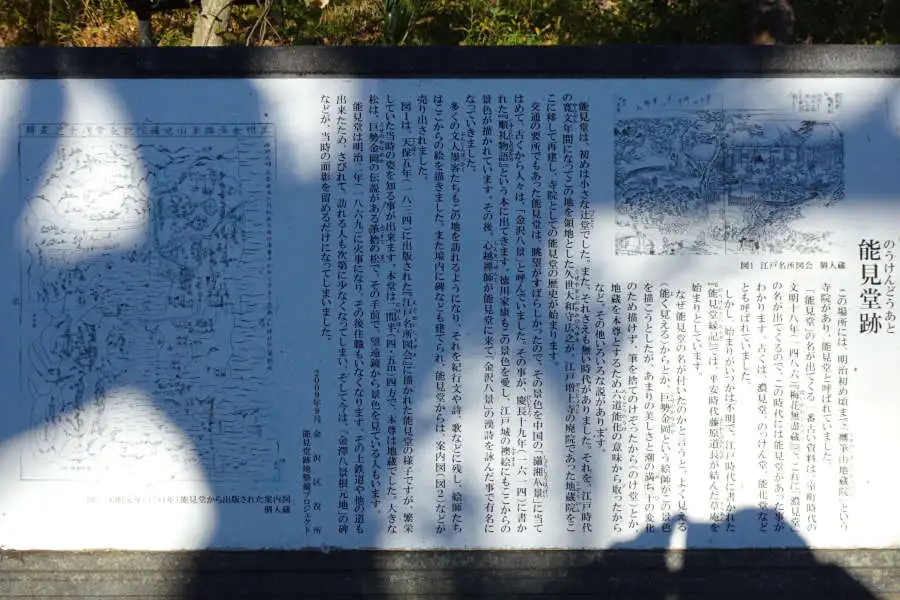 のうけんどうあと
能見堂跡
この場所には、明治初め頃まで「擲筆山地蔵院」という
寺院があり、能見堂と呼ばれていました。
「能見堂」の名が出てくる一番古い資料は、室町時代の
文明十八年(一四八六)『梅花無盡蔵』で、これに「濃見堂」
の名が出てくるので、この時代には能見堂があった事が
わかります。古くは、濃見堂、のっけん堂、能化堂など
とも呼ばれていました。
しかし、始まりがいつかは不明で、江戸時代に書かれた
『能見堂縁起』には、平安時代藤原道長が結んだ草庵を
なぜ能見堂の名が付いたのかと言うと、よく見える
(能く見える)からとか、巨勢金岡という絵師がこの景色
を描こうとしたが、あまりの美しさと潮の満ち干の変化
のため描けず、筆を捨てのけぞったから(のけ堂)とか
地蔵を本尊とするため「六道能化」の意味から取ったから
など、その他いろいろな説があります。
図1 江戸名所図会 個人蔵
能見堂は、初めは小さな辻堂でした。また、それさえも無い時代がありました。それを、江戸時代
の寛文年間になってこの地を領地とした久世大和守広之が、江戸増上寺の廃院であった地蔵院をこ
こに移して再建し、寺院としての能見堂の歴史が始まります。
交通の要所でもあった能見堂は、眺望がすばらしかったので、その景色を中国の「瀟湘八景」に当て
はめて、古くから人々は、「金沢八景」と呼んでいました。その事が、慶長十九年(一六一四)に書か
れた『順礼物語』という本に出てきます。徳川家康もこの景色を愛し、江戸城の襖絵にもここからの
景色が描かれています。その後、心越禅師が能見堂に来て「金沢八景」の漢詩を詠んだ事で有名に
なっていきました。
多くの文人墨客たちもこの地を訪れるようになり、それを紀行文や詩、歌などに残し、絵師たち
はここからの絵を描きました。また境内に碑なども建てられ、能見堂からは、案内図(図2)などが
売り出されました。
図1は、天保五年(一八三四)に出版された『江戸名所図会』に描かれた能見堂の様子ですが、繁栄
していた当時の姿を知る事が出来ます。本堂は二間半(四・五m)四方で、本尊は地蔵でした。大きな
松は、巨勢金岡の伝説がある「筆捨の松」で、その手前で、望遠鏡から景色を見ている人もいます。
能見堂は明治二年(一八六九)に火事になり、その後住職もいなくなります。その上鉄道や他の道も
出来たため、さびれて、訪れる人も次第に少なくなってしまい、そして今は、「金澤八景根元地」の碑
などが、当時の面影を留めるだけになってしまいました。
2009年9月 金沢区役所
能見堂跡地整備プロジェクト
能見堂から出版された案内図
個人蔵